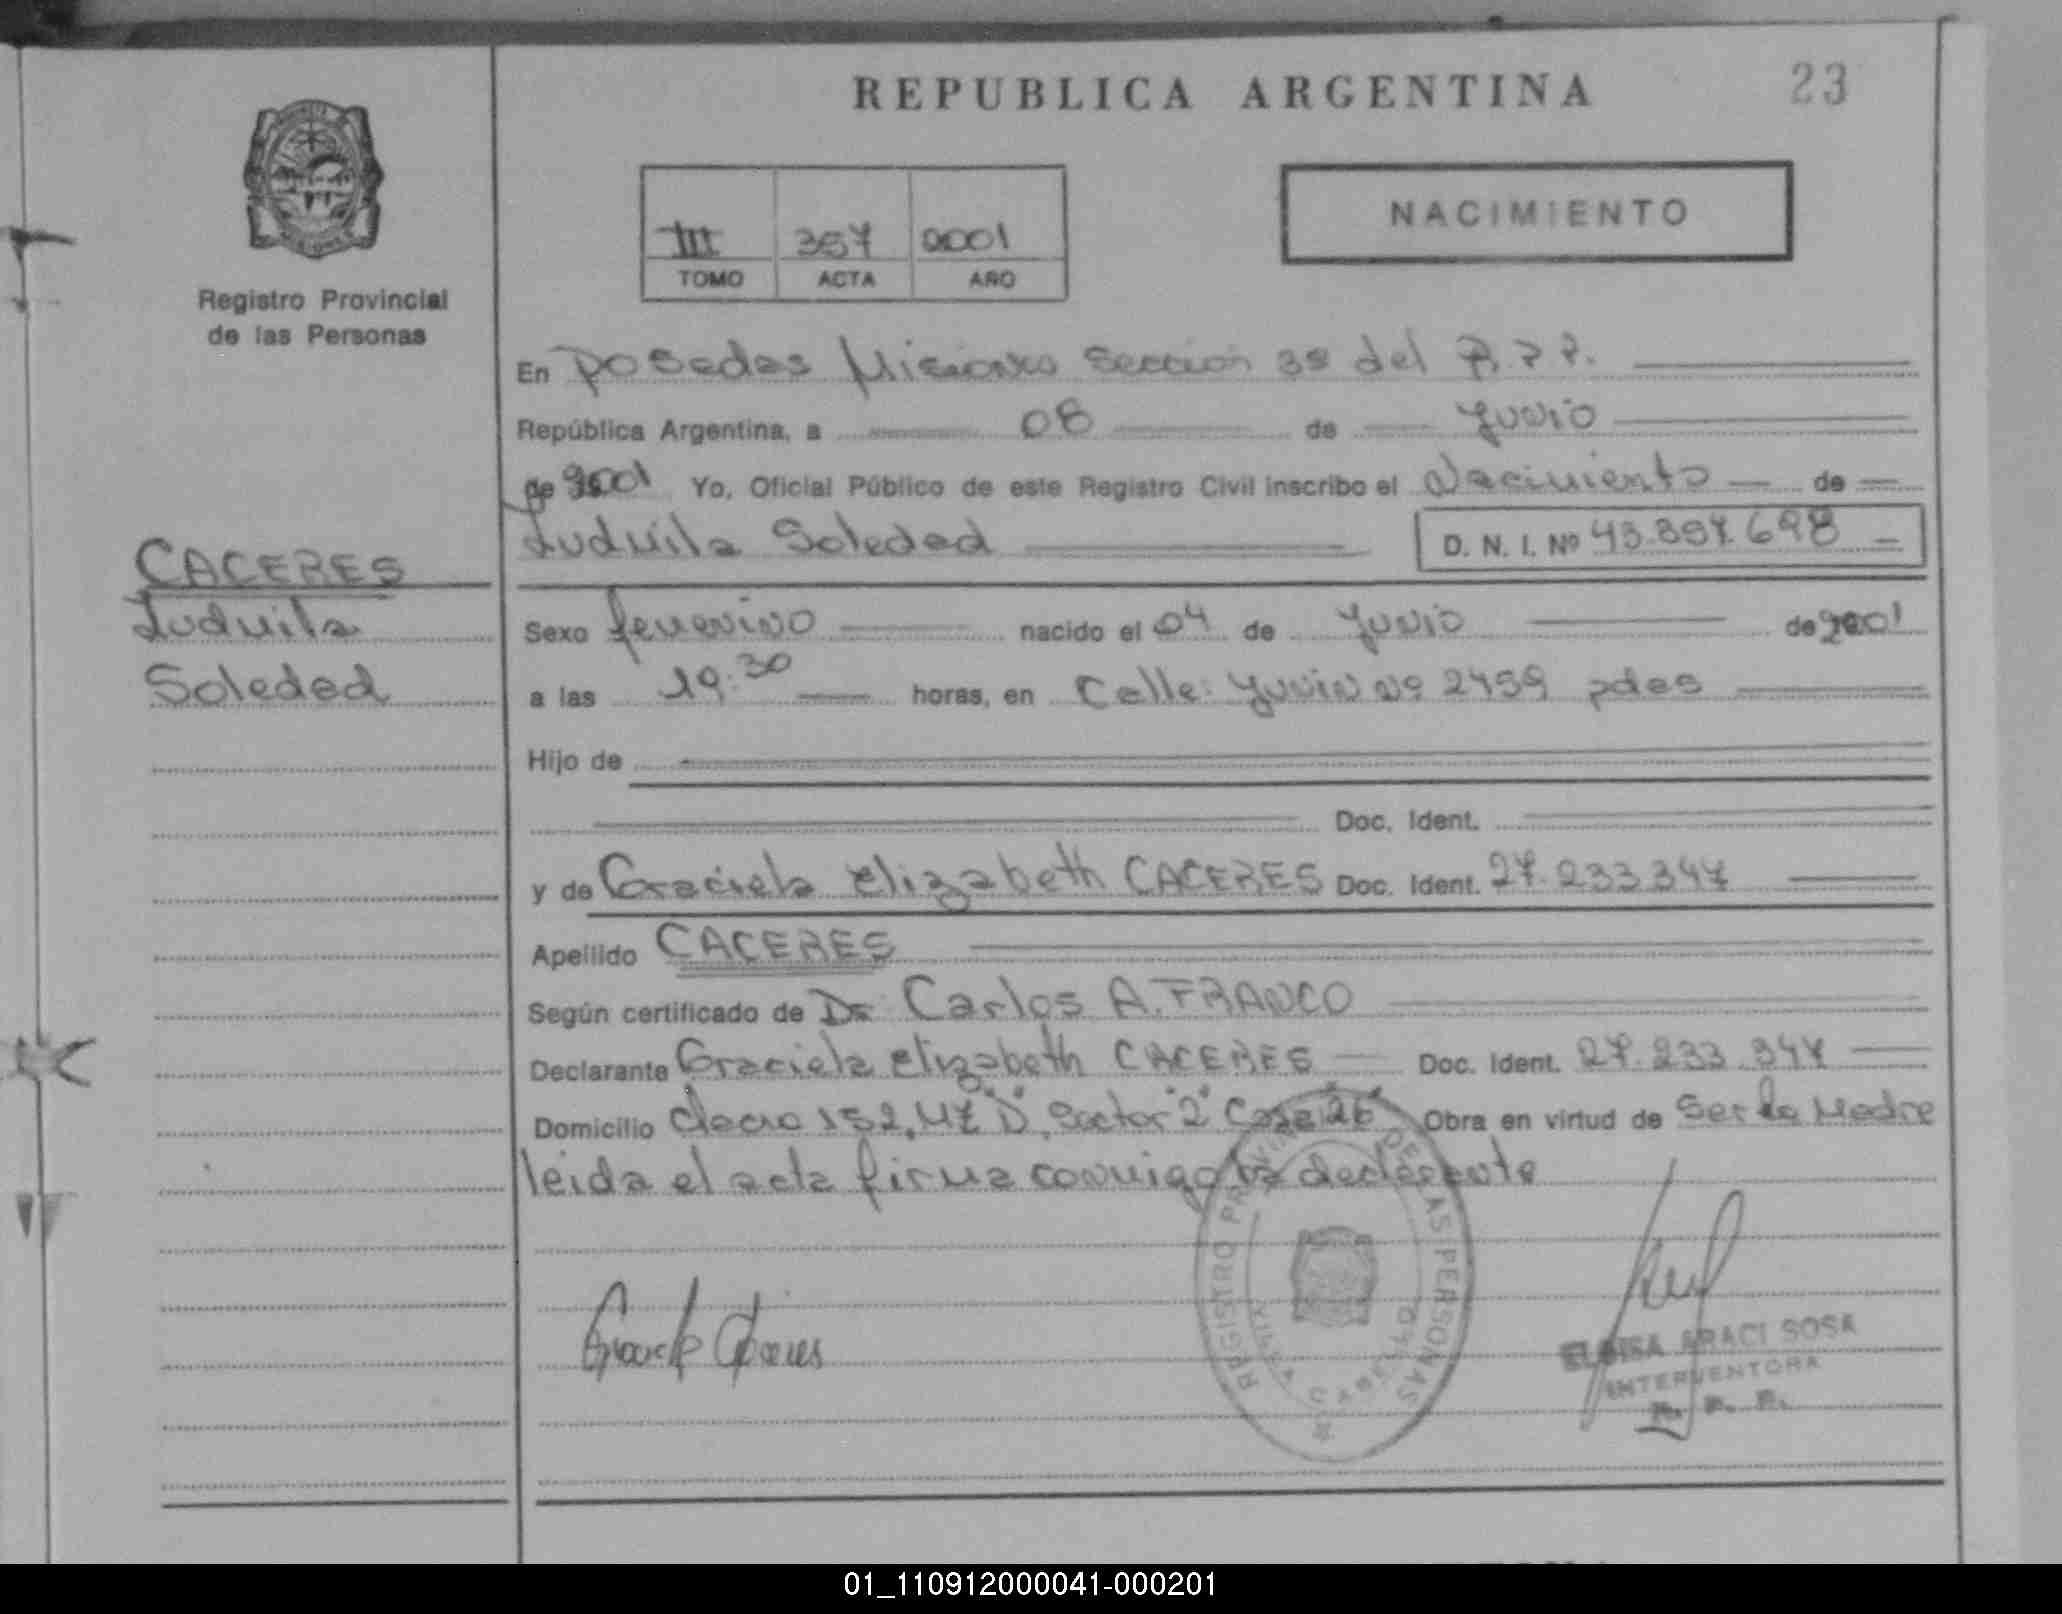 REPUBLICA ARGENTINA
23
Registro Provincial
de las Personas
III 357 2001
TOMO ACTA AÑO
NACIMIENTO
En Posadas Misiones Sección 3ª del R.P.P.
República Argentina, a 08 de Junio
de 2001 Yo, Oficial Público de este Registro Civil inscribo el Nacimiento de
Ludmila Soledad D. N. I. Nº 43.357.698
CACERES
Ludmila
Soledad
Sexo femenino nacido el 04 de Junio de 2001
a las 19:30 horas, en Calle: Junin Nº 2459 pdas
Hijo de
Doc. Ident.
y de Graciela Elizabeth CACERES Doc. Ident. 27.233.347
Apellido CACERES
Según certificado de Dr. Carlos A. FRANCO
Declarante Graciela Elizabeth CACERES Doc. Ident. 27.233.347
Domicilio chacra 152, Mz "D", Sector "2" Casa "26" Obra en virtud de Ser la Madre
leida el acta firma conmigo la declarante
REGISTRO PROVINCIAL DE LAS PERSONAS
Graciela Caceres
ELOISA ARACI SOSA
INTERVENTORA
R. P. P.
01_110912000041-000201